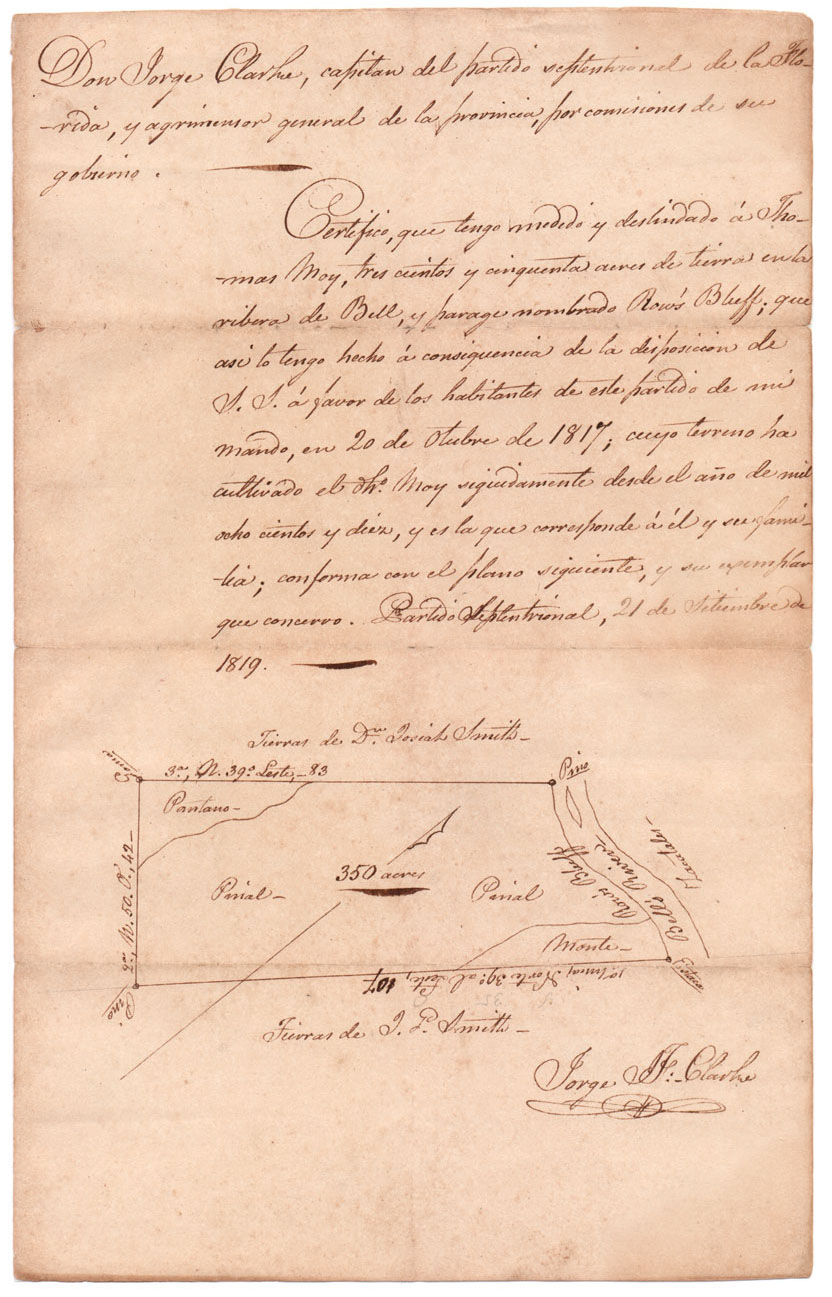 Don Jorge Clarke, capitan del partido septentrional de la Flo-
-rida, y agrimensor general de la provincia, por comisiones de su
gobierno.
Certifico, que tengo medido y deslindado á Tho-
-mas Moy, tres cientos y cinquenta acres de tierra en la
ribera de Bell, y parage nombrado Row's Bluff; que
asi lo tengo hecho á consiquencia de la disposicion de
S. S. á favor de los habitantes de este partido de mi
mando, en 20 de Otubre de 1817; cuyo terreno ha
cultivado el dho. Moy siguidamente desde el año de mil
ocho cientos y diez, y es la que corresponde á él y su fami-
-lia; conforma con el plano siguiente, y su exemplar
que concervo. Partido Septentrional, 21 de Setiembre de
1819.
Tierras de Dn. Josiah Smith-
Goma
3a., N. 39º. Leste, -83
Pino
Pantano-
350 acres
Pinial-
Pinial
Row's Bluff
Bell's River
Zacatales
2a., N. 50. O., 42-
Monte-
1a. linea, Norte 39º. al Leste, 107
Pino
Tierras de J. P. Smith-
Jorge J. F. Clarke